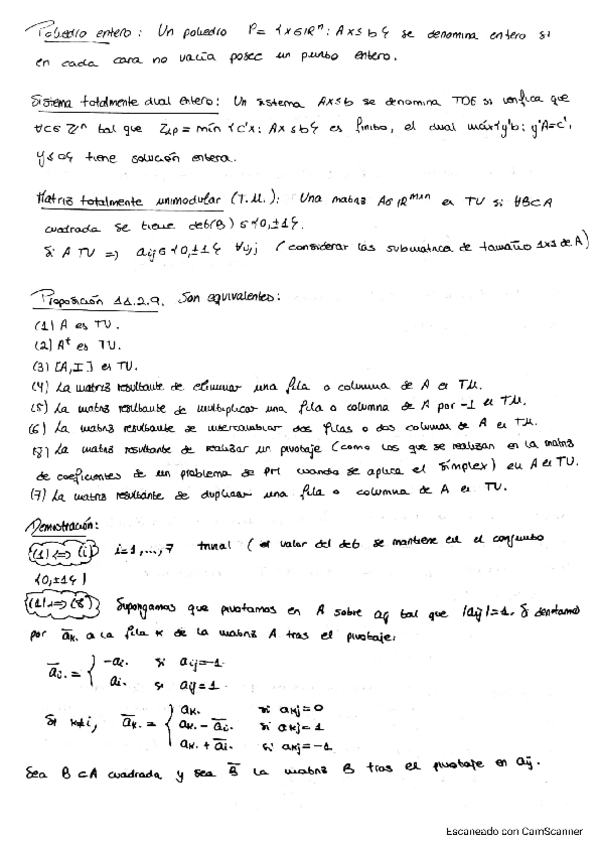 Poliedro entero: Un poliedro P= {x∈ℝⁿ: Ax≤b} se denomina entero si
en cada cara no vacía posee un punto entero.
Sistema totalmente dual entero: Un sistema Ax≤b se denomina TDE si verifica que
∀c∈ℤⁿ tal que Z_LP = mín {c'x: Ax≤b} es finito, el dual máx{y'b: y'A=c',
y≤0} tiene solución entera.
Matriz totalmente unimodular (T.U.): Una matriz A∈ℝᵐˣⁿ es TU si ∀B⊂A
cuadrada se tiene det(B)∈{0,±1}.
Si A TU ⇒ aij∈{0,±1} ∀i,j (considerar las submatrices de tamaño 1x1 de A)
Proposición 11.2.9. Son equivalentes:
(1) A es TU.
(2) Aᵗ es TU.
(3) [A,I] es TU.
(4) La matriz resultante de eliminar una fila o columna de A es T.U.
(5) La matriz resultante de multiplicar una fila o columna de A por -1 es T.U.
(6) La matriz resultante de intercambiar dos filas o dos columnas de A es T.U.
(8) La matriz resultante de realizar un pivotaje (como los que se realizan en la matriz
de coeficientes de un problema de PM cuando se aplica el Simplex) en A es TU.
(7) La matriz resultante de duplicar una fila o columna de A es TU.
Demostración:
(1)⇔(i) i=1,...,7 trivial (el valor del det se mantiene en el conjunto
{0,±1})
(1)⇒(8) Supongamos que pivotamos en A sobre aij tal que |aij|=1. Si denotamos
por āk. a la fila k de la matriz A tras el pivotaje:
āi. = { -ai. si aij=-1
ai. si aij=1
Si k≠i, āk. = { ak. si akj=0
ak. - āi. si akj=1
ak. + āi. si akj=-1
Sea B⊂A cuadrada y sea B̄ la matriz B tras el pivotaje en aij.
Escaneado con CamScanner